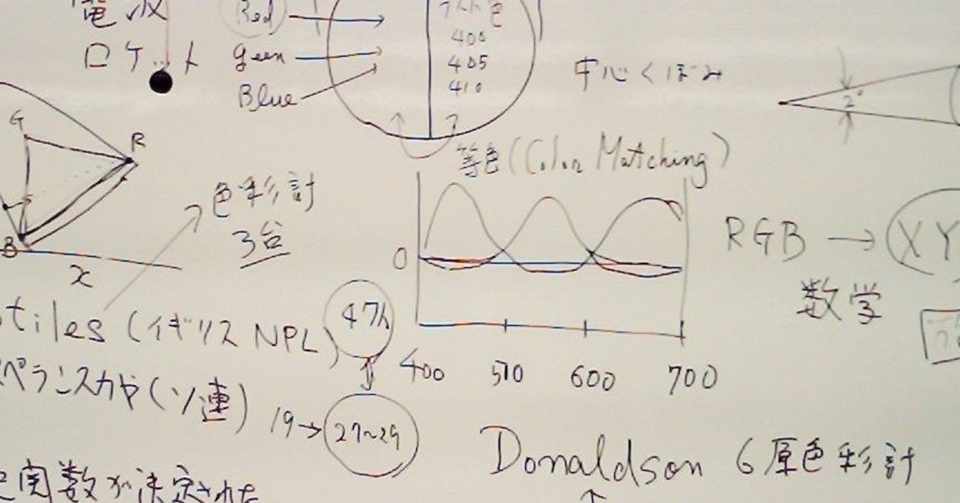 電
ロケット
Red
Green
Blue
400
405
410
中心くぼみ
2°
G
R
B
x
色彩計
3台
等色(Color Matching)
0
400 510 600 700
RGB → XY
数学
tiles (イギリス NPL) 47人
ペランスカヤ(ソ連)
19→ 27~29
Donaldson 6原色彩計
関数が決定された